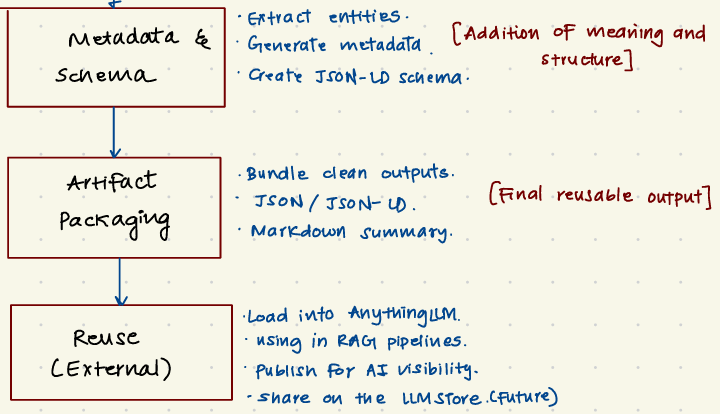 Metadata &
Schema
• Extract entities.
• Generate metadata.
• Create JSON-LD schema.
[Addition of meaning and
structure]
Artifact
Packaging
• Bundle clean outputs.
• JSON / JSON-LD.
• Markdown summary.
[Final reusable output]
Reuse
(External)
• Load into AnythingLLM.
• using in RAG pipelines.
• Publish for AI visibility.
• share on the LLMStore.(Future)